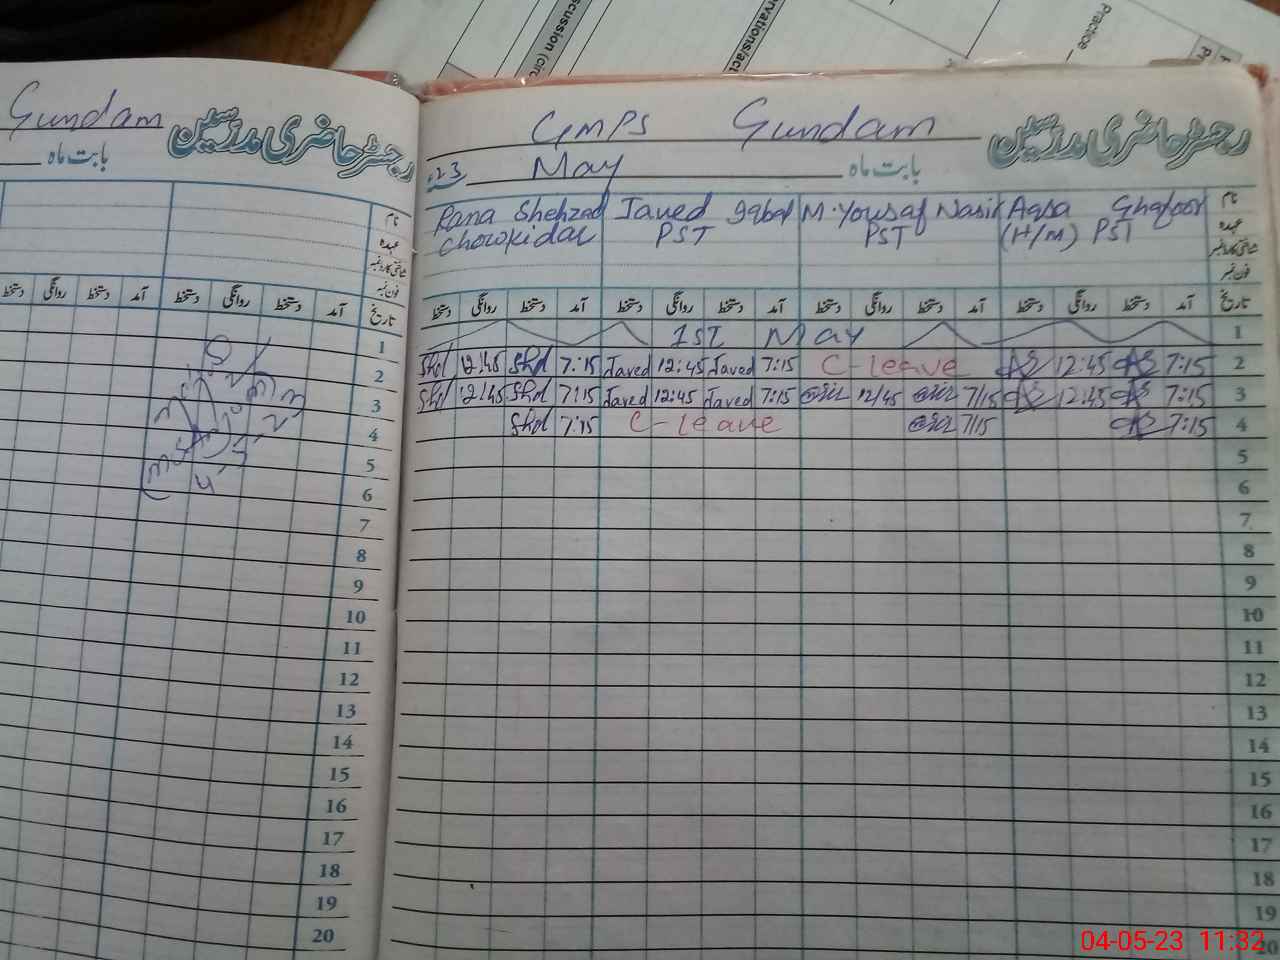 Discussion (circ
ervations/act
Practice
Gundam
رجسٹر حاضری مدرسین
بابت ماہ
نام
عہدہ
شناختی کارڈ نمبر
فون نمبر
تاریخ آمد دستخط روانگی دستخط آمد دستخط روانگی دستخط
1
2
3
4
5
6
7
8
9
10
11
12
13
14
15
16
17
18
19
20
4-5-2
GMPS Gundam رجسٹر حاضری مدرسین
23 May بابت ماہ
Rana Shehzad Javed Iqbal M. Yousaf Nasir Aqsa Ghafoor نام
Chowkidar PST PST (H/M) PST عہدہ
شناختی کارڈ نمبر
فون نمبر
تاریخ آمد دستخط روانگی دستخط آمد دستخط روانگی دستخط آمد دستخط روانگی دستخط آمد دستخط روانگی دستخط
1ST May 1
Shd 12:45 Shd 7:15 Javed 12:45 Javed 7:15 C-leave 12:45 7:15 2
Shd 12:45 Shd 7:15 Javed 12:45 Javed 7:15 12/45 7/15 12:45 7:15 3
Shd 7:15 C-leave 7/15 7:15 4
5
6
7
8
9
10
11
12
13
14
15
16
17
18
19
20
04-05-23 11:32